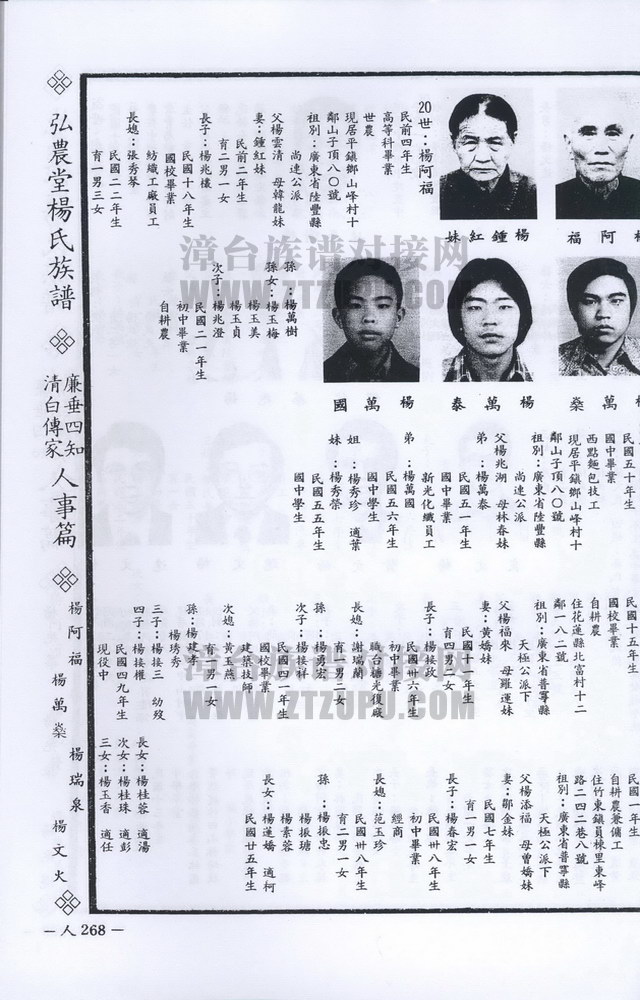 弘農堂楊氏族譜
廉垂四知
清白傳家
人事篇
楊阿福
楊萬燊
楊瑞泉
楊文火
—人268—
楊阿福
楊鍾紅妹
楊萬燊
楊萬泰
楊萬國
20世：楊阿福
民前四年生
高等科畢業
世農
現居平鎮鄉山峰村十
鄰山子頂八〇號
祖別：廣東省陸豐縣
尚速公派
父楊雲清 母韓龍妹
妻：鍾紅妹
民前二年生
育二男一女
長子：楊兆檥
民國十八年生
國校畢業
紡織工廠員工
長媳：張秀琴
民國二二年生
育一男三女
孫：楊萬樹
孫女：楊玉梅
楊玉美
楊玉貞
次子：楊兆澄
民國二一年生
初中畢業
自耕農
民國五十年生
國中畢業
西點麵包技工
現居平鎮鄉山峰村十
鄰山子頂八〇號
祖別：廣東省陸豐縣
尚速公派
父楊兆湖 母林春妹
弟：楊萬泰
民國五一年生
國中畢業
新光化纖員工
弟：楊萬國
民國五六年生
國中學生
姐：楊秀珍 適葉
妹：楊秀榮
民國五五年生
國中學生
民國十五年生
國校畢業
自耕農
住花蓮縣北富村十二
鄰一八二號
祖別：廣東省普寧縣
天極公派下
父楊福來 母羅運妹
妻：黃嬌妹
民國十一年生
育四男三女
長子：楊接政
民國卅六年生
初中畢業
職台糖光復廠
長媳：謝瑞蘭
育二男一女
孫：楊勇宏
次子：楊接祥
民國四一年生
國校畢業
建築技師
次媳：黃玉燕
育一男一女
孫：楊建孝
楊琇秀
三子：楊接三 幼歿
四子：楊接權
民國四九年生
現役中
長女：楊桂蓉 適湯
次女：楊桂珠 適彭
三女：楊玉香 適任
民國一年生
自耕農兼傭工
住竹東鎮員棟里東峰
路二四二巷八號
祖別：廣東省普寧縣
天極公派下
父楊添福 母曾嬌妹
妻：鄒金妹
民國七年生
育一男一女
長子：楊春宏
民國卅八年生
初中畢業
經商
長媳：范玉珍
民國卅八年生
育二男一女
孫：楊振忠
楊振瑭
楊素蓉
長女：楊蓮嬌 適柯
民國廿五年生
漳台族谱对接网
WWW.ZTZUPU.COM
漳台族谱对接网
WWW.ZTZUPU.COM